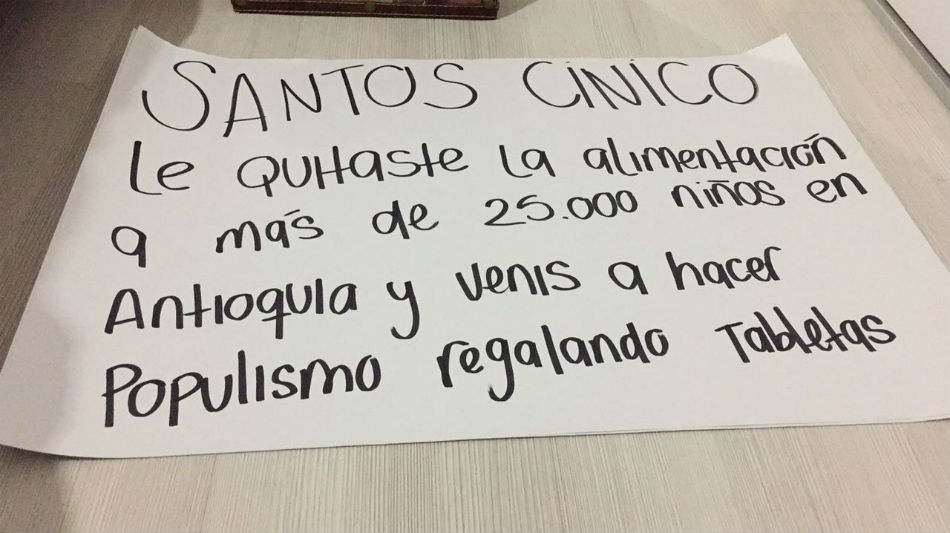 SANTOS CÍNICO
Le QUitaste la alimentación
a más de 25.000 niños en
Antioquia y venis a hacer
Populismo regalando Tabletas